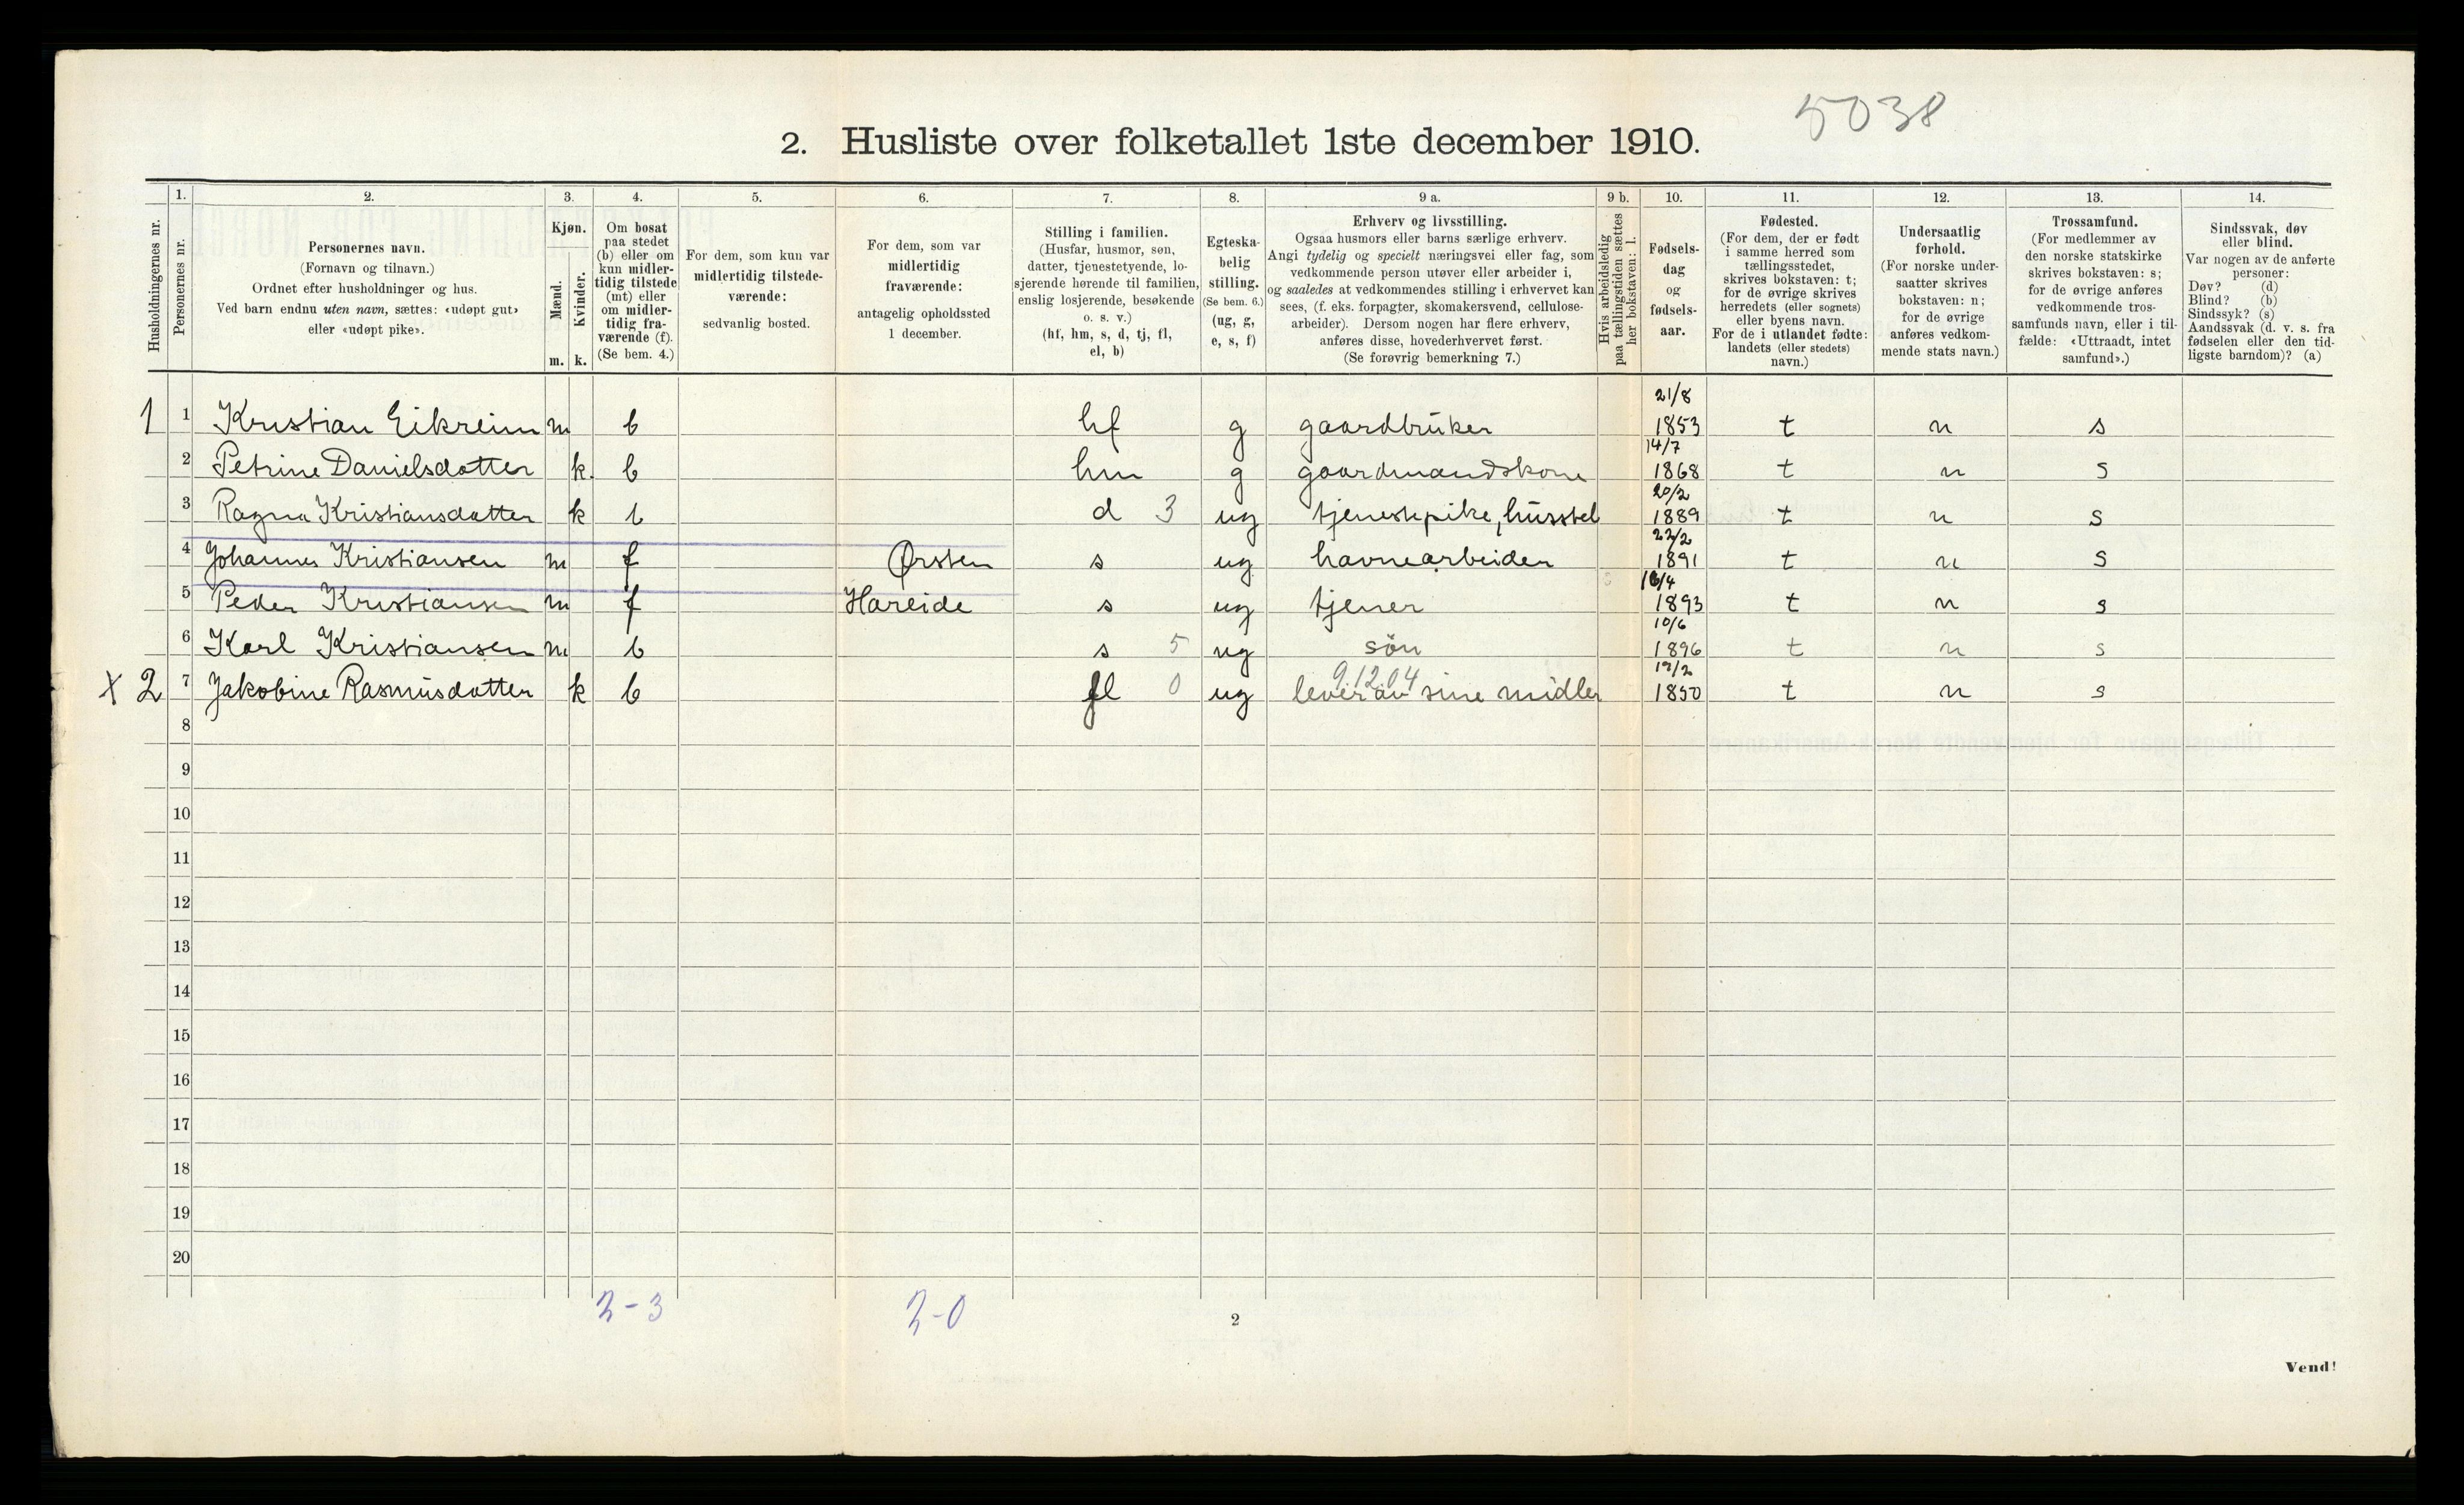 5038
2. Husliste over folketallet 1ste december 1910.
Husholdningernes nr.
1.
Personernes nr.
2.
Personernes navn.
(Fornavn og tilnavn.)
Ordnet efter husholdninger og hus.
Ved barn endnu uten navn, sættes: «udøpt gut»
eller «udøpt pike».
3.
Kjøn.
Mænd.
Kvinder.
m. k.
4.
Om bosat
paa stedet
(b) eller om
kun midler-
tidig tilstede
(mt) eller
om midler-
tidig fra-
værende (f).
(Se bem. 4.)
5.
For dem, som kun var
midlertidig tilstede-
værende:
sedvanlig bosted.
6.
For dem, som var
midlertidig
fraværende:
antagelig opholdssted
1 december.
7.
Stilling i familien.
(Husfar, husmor, søn,
datter, tjenestetyende, lo-
sjerende hørende til familien,
enslig losjerende, besøkende
o. s. v.)
(hf, hm, s, d, tj, fl,
el, b)
8.
Egteska-
belig
stilling.
(Se bem. 6.)
(ug, g,
e, s, f)
9 a.
Erhverv og livsstilling.
Ogsaa husmors eller barns særlige erhverv.
Angi tydelig og specielt næringsvei eller fag, som
vedkommende person utøver eller arbeider i,
og saaledes at vedkommendes stilling i erhvervet kan
sees, (f. eks. forpagter, skomakersvend, cellulose-
arbeider). Dersom nogen har flere erhverv,
anføres disse, hovederhvervet først.
(Se forøvrig bemerkning 7.)
9 b.
Hvis arbeidsledig
paa tællingstiden sættes
her bokstaven: l.
10.
Fødsels-
dag
og
fødsels-
aar.
11.
Fødested.
(For dem, der er født
i samme herred som
tællingsstedet,
skrives bokstaven: t;
for de øvrige skrives
herredets (eller sognets)
eller byens navn.
For de i utlandet fødte:
landets (eller stedets)
navn.)
12.
Undersaatlig
forhold.
(For norske under-
saatter skrives
bokstaven: n;
for de øvrige
anføres vedkom-
mende stats navn.)
13.
Trossamfund.
(For medlemmer av
den norske statskirke
skrives bokstaven: s;
for de øvrige anføres
vedkommende tros-
samfunds navn, eller i til-
fælde: «Uttraadt, intet
samfund».)
14.
Sindssvak, døv
eller blind.
Var nogen av de anførte
personer:
Døv? (d)
Blind? (b)
Sindssyk? (s)
Aandssvak (d. v. s. fra
fødselen eller den tid-
ligste barndom)? (a)
1 1 Kristian Eikreim m b hf g gaardbruker 21/8 1853 t n s
2 Petrine Danielsdotter k. b hm g gaardmandskone 14/7 1868 t n s
3 Ragna Kristiansdatter k b d 3 ug tjenestepike, husstel 20/2 1889 t n s
4 Johannes Kristiansen m f Ørsten s ug havnearbeider 22/2 1891 t n s
5 Peder Kristiansen m f Hareide s ug tjener 16/4 1893 t n s
6 Karl Kristiansen m b s 5 ug søn 10/6 1896 t n s
x 2 7 Jakobine Rasmusdatter k b fl 0 ug 9.1204 lever av sine midler 12/2 1850 t n s
8
9
10
11
12
13
14
15
16
17
18
19
20
2-3 2-0
2
Vend!